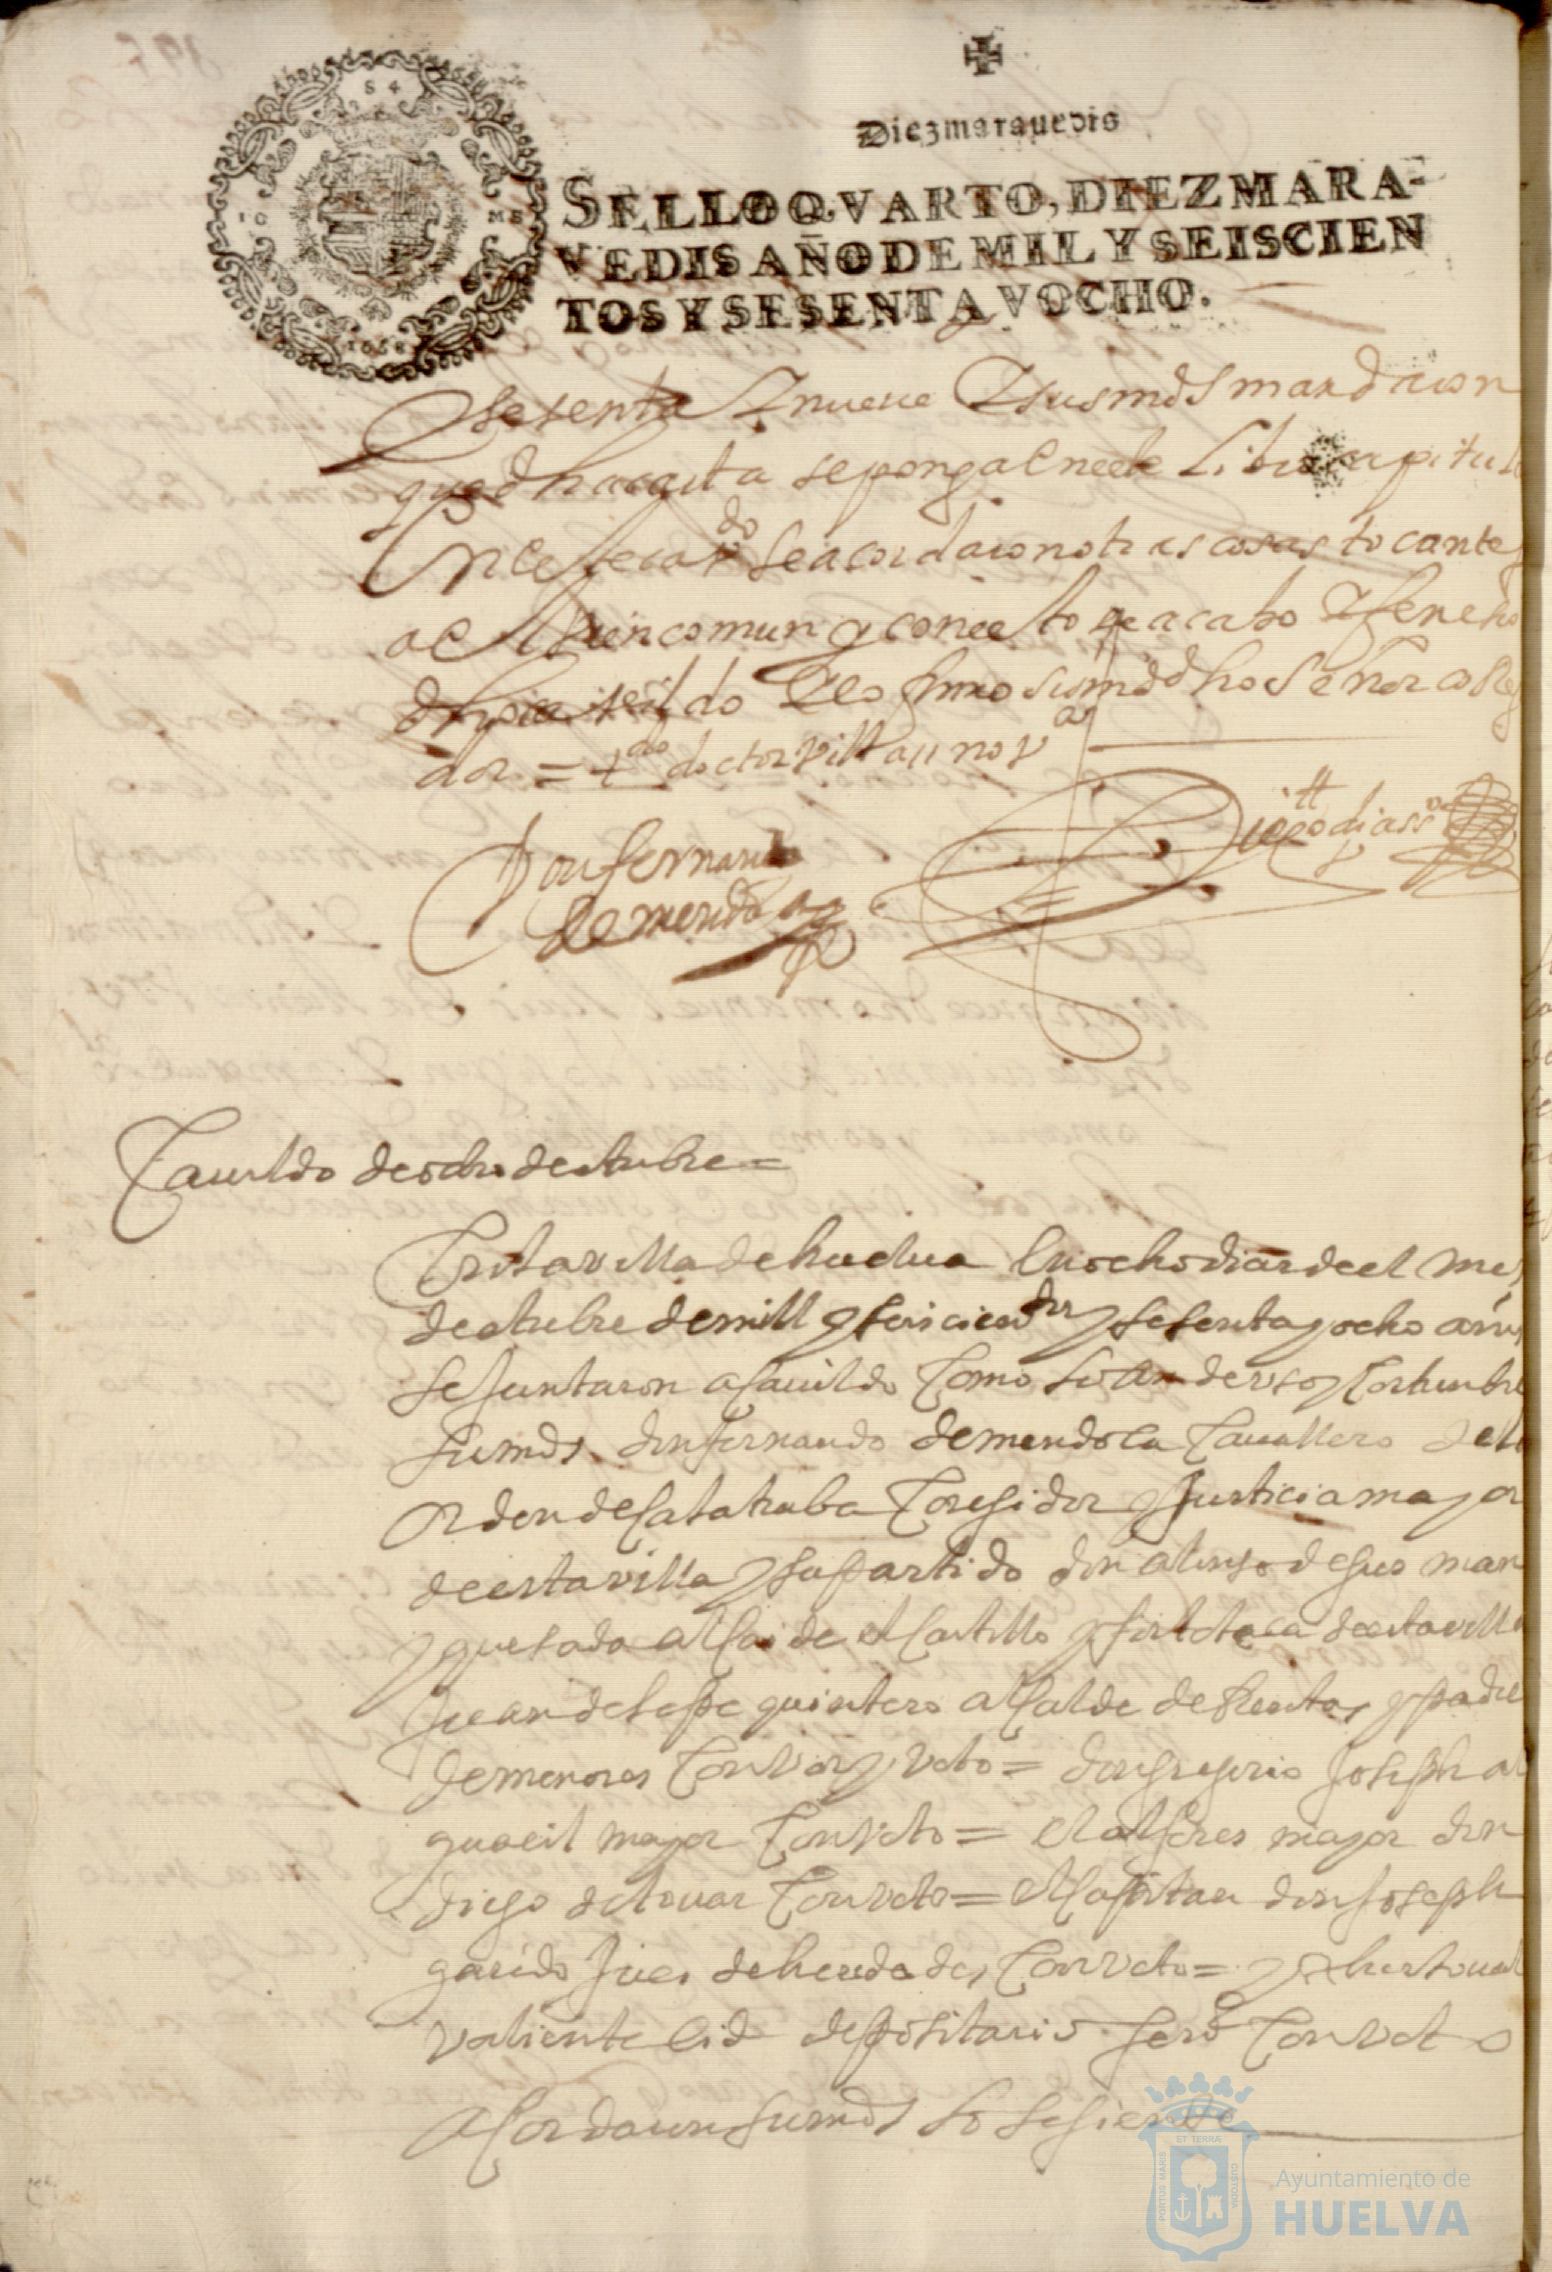 Diezmarauedis
SELLO QVARTO, DIEZ MARA-
VEDIS AÑO DE MIL Y SEISCIEN
TOS Y SESENTA Y OCHO.
1668
sesenta y nueue y sus mds mandaron
que dha carta se ponga en este Libro capitul
En este cavdo se acordaron otras cosas tocantes
a el bien comun y con esto se acabo y fenecio
dho cavildo y lo firmo su md dho Señor coRegi
dor = tdo doctor va
Don fernando
de mendoça
Diego dias
Cauildo de ocho de otubre =
En la villa de huelua en ocho dias de el mes
de otubre de mill y seiscientos y sesenta y ocho años
se juntaron a Cauildo Como lo an de vso y Costumbre
sus mds don fernando de mendoça Cauallero de la
orden de Calatraba Coregidor y Justicia mayor
de esta villa y su partido don alonso de
y quesada alCaide el Castillo y fortaleça de esta villa
Juan de lepe quintero alCalde de Rentas y padre
de menores Con Voz y Voto = don gregorio Joseph al
guacil mayor Con Voto = el alferes mayor don
diego de touar Con Voto = el Capitan don Joseph
garido Jues de heredades Con Voto = y xhristoual
valiente Cid depositario Con Voto
aCordaron sus mds lo sesiente
PORTUS MARIS ET TERRAE CUSTODIA
Ayuntamiento de
HUELVA